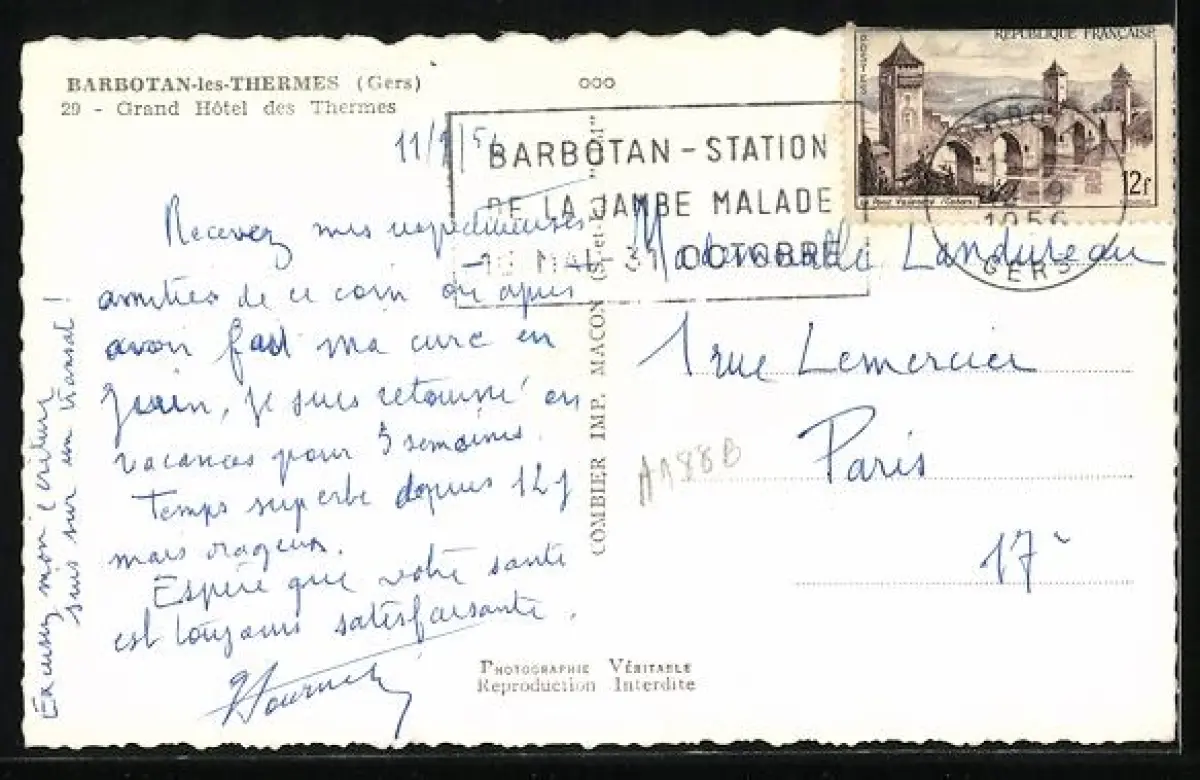 BARBOTAN-les-THERMES (Gers)
29 - Grand Hôtel des Thermes
RÉPUBLIQUE FRANÇAISE
POSTES
12f
BARBOTAN - STATION
DE LA JAMBE MALADE
31 OCTOBRE
1956
GERS
11/
Recevez mes respectueuses
amitiés de ce coin où après
avoir fait ma cure en
juin, je suis retourné en
vacances pour 3 semaines.
Temps superbe depuis 12 j
mais orageux.
Espère que votre santé
est toujours satisfaisante.
Excusez mon écriture
suis sur un transat !
COMBIER IMP. MACON (S.-et-L.)
Mademoiselle Landureau
1 rue Lemercier
Paris
17e
A188B
PHOTOGRAPHIE VÉRITABLE
Reproduction Interdite